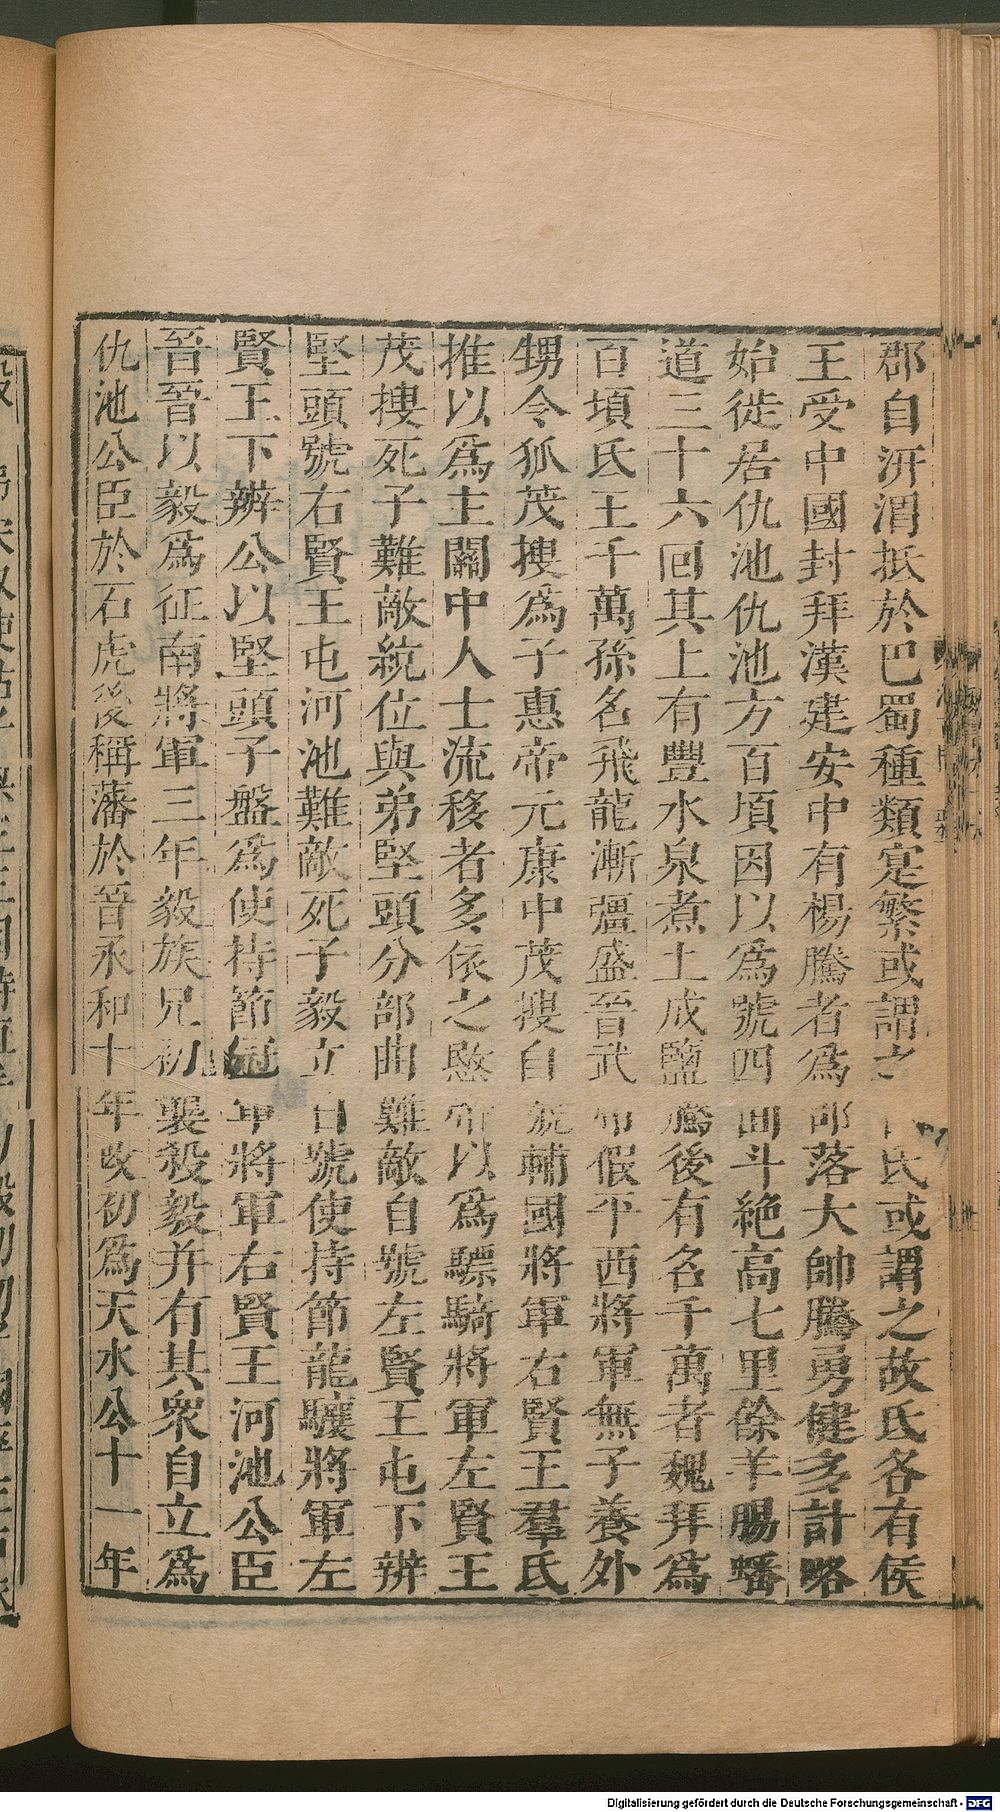 郡自汧渭抵於巴蜀種類寔繁或謂之白氐或謂之故氐各有侯
王受中國封拜漢建安中有楊騰者爲部落大帥騰勇健多計略
始徙居仇池仇池方百頃因以爲號四面斗絶高七里餘羊腸蟠
道三十六回其上有豐水泉煮土成鹽騰後有名千萬者魏拜爲
百頃氐王千萬孫名飛龍漸彊盛晉武帝假平西將軍無子養外
甥令狐茂搜爲子惠帝元康中茂搜自號輔國將軍右賢王羣氐
推以爲主關中人士流移者多依之愍帝以爲驃騎將軍左賢王
茂摟死子難敵統位與弟堅頭分部曲難敵自號左賢王屯下辨
堅頭號右賢王屯河池難敵死子毅立自號使持節龍驤將軍左
賢王下辨公以堅頭子盤爲使持節冠軍將軍右賢王河池公臣
晉晉以毅爲征南將軍三年毅族兄初襲殺毅并有其衆自立爲
仇池公臣於石虎後稱藩於晉永和十年改初爲天水公十一年
Digitalisierung gefördert durch die Deutsche Forschungsgemeinschaft - DFG